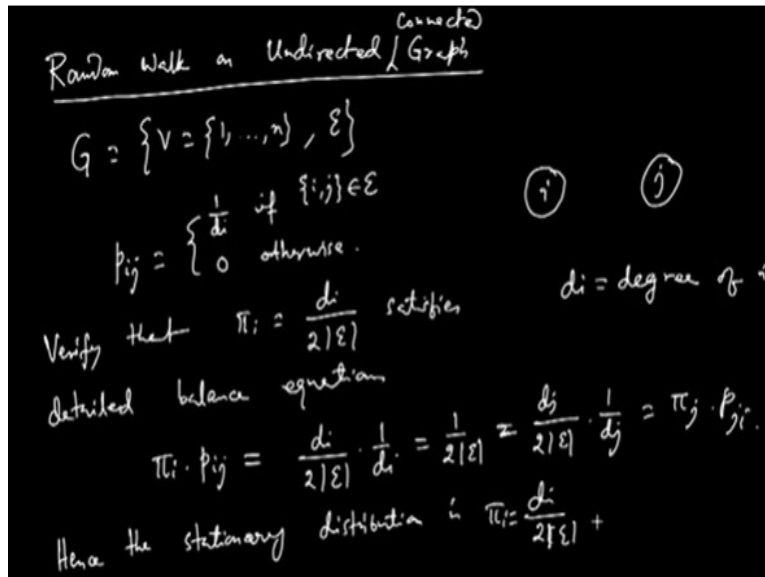 Random Walk on Undirected / Connected Graph
G = {V = {1, ..., n}, ℰ}
p_ij = { 1/di if {i,j} ∈ ℰ
0 otherwise.
i j
di = degree of i
Verify that π_i = di / 2|ℰ| satisfies
detailed balance equations
π_i · p_ij = di / 2|ℰ| · 1/di = 1 / 2|ℰ| = dj / 2|ℰ| · 1/dj = π_j · p_ji.
Hence the stationary distribution is π_i = di / 2|ℰ| +